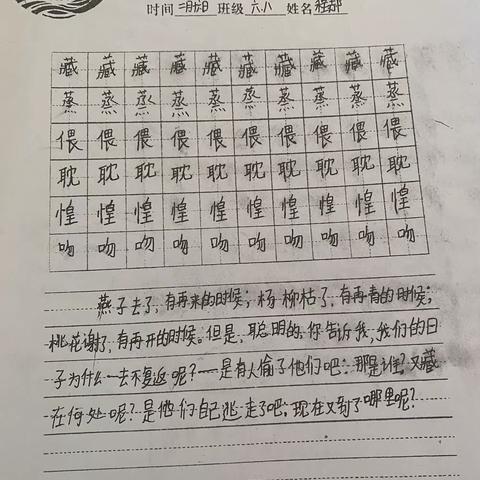 时间 二月六日 班级 六.八 姓名
藏藏藏藏藏藏藏藏藏藏
蒸蒸蒸蒸蒸蒸蒸蒸蒸蒸
偎偎偎偎偎偎偎偎偎偎
耽耽耽耽耽耽耽耽耽耽
惶惶惶惶惶惶惶惶惶惶
吻吻吻吻吻吻吻吻吻吻
燕子去了,有再来的时候;杨柳枯了,有再青的时候;
桃花谢了,有再开的时候。但是,聪明的,你告诉我,我们的日
子为什么一去不复返呢?——是有人偷了他们吧:那是谁?又藏
在何处呢?是他们自己逃走了吧:现在又到了哪里呢?